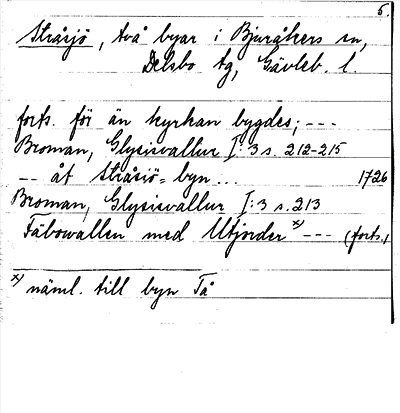 5.
Stråsjö, två byar i Bjuråkers sn,
Delsbo tg, Gävleb. l.
forts. för än kyrkan bygdes; ---
Broman, Glysisvallur I:3 s. 212-215
-- åt Stråsiö-byn... 1726
Broman, Glysisvallur I:3 s. 213
Fäbowallen med Utjorder x) --- (forts.)
x) näml. till byn Tå